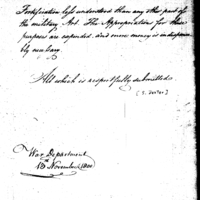 Fortification less understood than any other part of
the military Art. The Appropriation for these
purposes are expended. and more money is indispensa
bly necessary.
All which is respectfully submitted
(S. Dexter)
War Department
18 November 1800